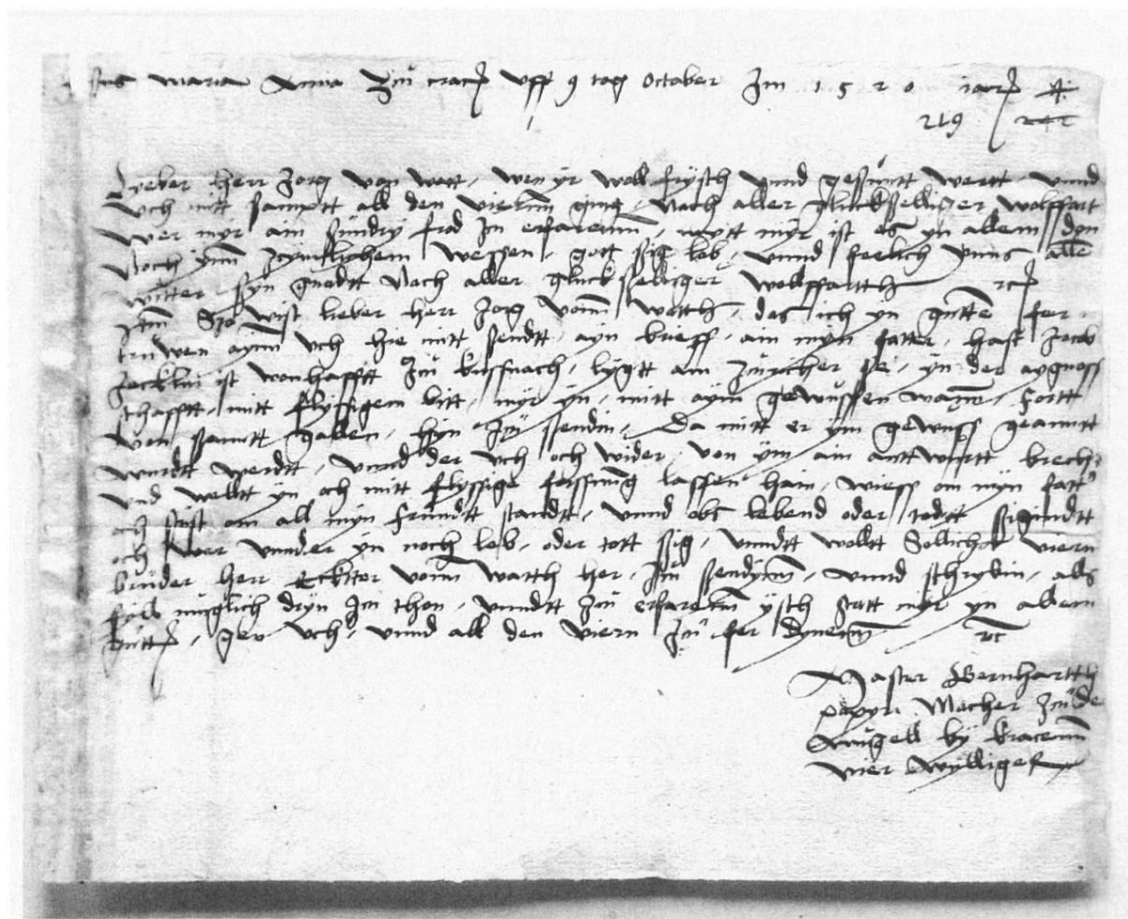 Jhs Maria Anna Zuͦ cracꝭ vff 9 tag October Im 1520 iarꝭ
219
Lieber herr Jorg von watt, wen yr woll frysch vnnd gesuntt wertt, vnnd
vch mitt sampt all den vieren ging, Nach aller gluckselliger wolffart
wer myr ain sundry frod zu erfarenn, wytt myr ist es yn allem dyn
Noch ynn zymlichem wessen, gott sig lob, vnnd ferlich vnns alle
witter syn gnadtt Nach aller gluckselliger wollffartth
Item Szo wist lieber herr Jorg vonn watth, das ich yn gutte fer
truwen aynn vch hie mitt sendtt, ayn brieff, ain myn fatter, hast Jacob
Jecklin ist wonhafftt Zuͦ kussnach, lygtt am Zuricher se, yn der aygnoss
schafftt, mitt flyssigem bitt, myr yn, mitt aym gewussen, fortt
von sanctt gallen, hyn Zuͦ sendin, Da mitt er ym gewuss geanntt
wurdtt werdtt, vnnd der vch och wider, von ym ain anttwurtt brech
vnd welltt yn och mitt flyssige forssung lassen hain, wies om myn fatt
och sust om all myn frundtt standtt, vnnd obs lebend oder todtt sigendtt
och wer vnnder yn noch leb, oder tott sig, vnndtt welltt Sollichs viern
bruder herr vonn watth her, Zuͦ sendynn, vnnd schrybin, alls
fyll muglich dryn Zuͦ thon, vnndtt Zuͦ erfarenn ysch statt myr yn allem
guttꝭ, gen vch, vnnd all den viern Zuͦ fer dynenn
Maister Bernhartth
papyr Macher Zuͦ de
by kracenn
vier wylliger